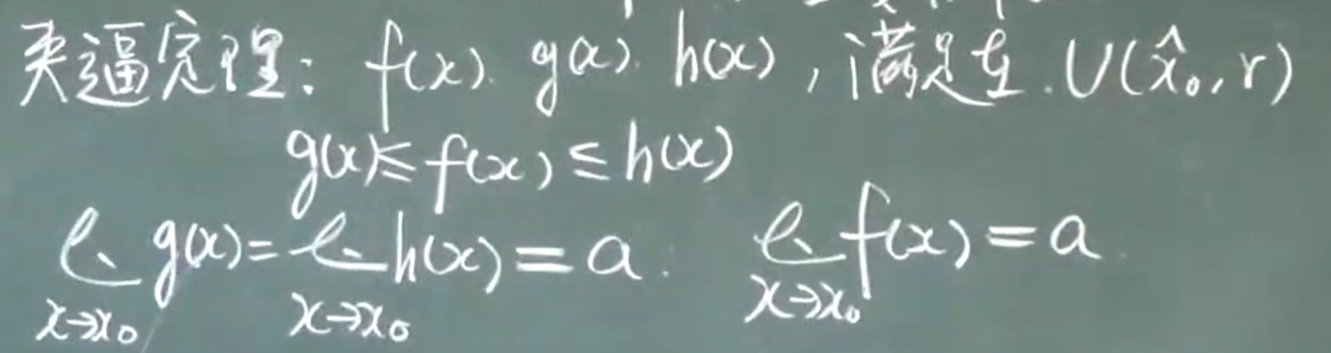 夹逼定理: f(x). g(x). h(x), 满足在. U(x̂₀, r)
g(x) ≤ f(x) ≤ h(x)
lim_{x→x₀} g(x) = lim_{x→x₀} h(x) = a. lim_{x→x₀} f(x) = a.